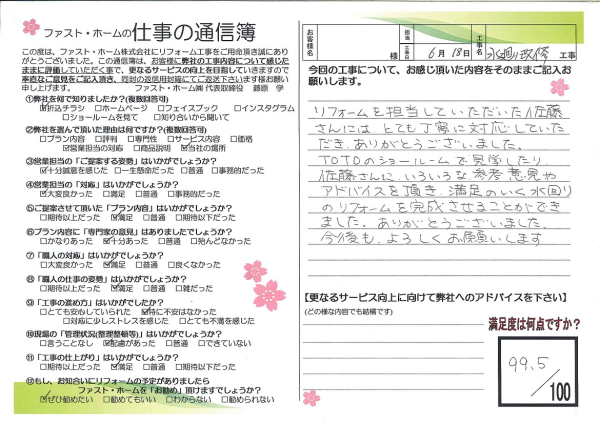 ファスト・ホームの仕事の通信簿
この度は、ファスト・ホーム株式会社にリフォーム工事をご用命頂き誠にあり
がとうございました。この通信簿は、お客様に弊社の工事内容について感じた
ままに評価していただく事で、更なるサービスの向上を目指していきますので
率直なご意見をご記入頂き、同封の返信用封筒にてご返送下さいます様お願い
申し上げます。 ファスト・ホーム㈱ 代表取締役 藤原 学
①弊社を何で知りましたか?(複数回答可)
☑折込チラシ □ホームページ □フェイスブック □インスタグラム
□ショールームを見て □知り合いから聞いて
②弊社を選んで頂いた理由は何ですか?(複数回答可)
□プラン内容 □評判 □専門性 □サービス内容 □価格
☑営業担当の対応 □商品説明 ☑当社の場所
③営業担当の「ご提案する姿勢」はいかがでしょうか?
☑十分誠意を感じた □一生懸命だった □普通 □事務的だった
④営業担当の「対応」はいかがでしょうか?
☑大変良かった □満足 □普通 □事務的だった
⑤ご提案させて頂いた「プラン内容」はいかがでしょうか?
□期待以上だった ☑満足 □普通 □期待以下だった
⑥プラン内容に「専門家の意見」はありましたでしょうか?
□かなりあった ☑十分あった □普通 □殆んどなかった
⑦「職人の対応」はいかがでしょうか?
□大変良かった ☑満足 □普通 □良くなかった
⑧「職人の仕事の姿勢」はいかがでしょうか?
□期待以上だった ☑満足 □普通 □雑だった
⑨「工事の進め方」はいかがでしたか?
□とても安心していられた ☑特に不安はなかった
□対応に少しストレスを感じた □とても不満を感じた
⑩現場の「管理状況(整理整頓等)」はいかがでしょうか?
□言うことなし ☑配慮があった □普通 □できていない
⑪「工事の仕上がり」はいかがでしょうか?
□期待以上だった ☑満足 □普通 □期待以下だった
⑫もし、お知合いにリフォームの予定がありましたら
ファスト・ホームを「お勧め」頂けますでしょうか?
☑ぜひ勧めたい □勧めてもいい □わからない □勧められない
お客様名 様 担当 工事日 6月18日 工事名 水廻り改修 工事
今回の工事について、お感じ頂いた内容をそのままご記入お
願いします。
リフォームを担当していただいた佐藤
さんには、とても丁寧に対応していた
だき、ありがとうございました。
TOTOのショールームで見学したり、
佐藤さんに、いろいろな参考意見や
アドバイスを頂き、満足のいく水回り
のリフォームを完成させることができ
ました。ありがとうございました。
今後も、よろしくお願いします
【更なるサービス向上に向けて弊社へのアドバイスを下さい】
(どの様な内容でも結構です)
満足度は何点ですか?
99.5/100